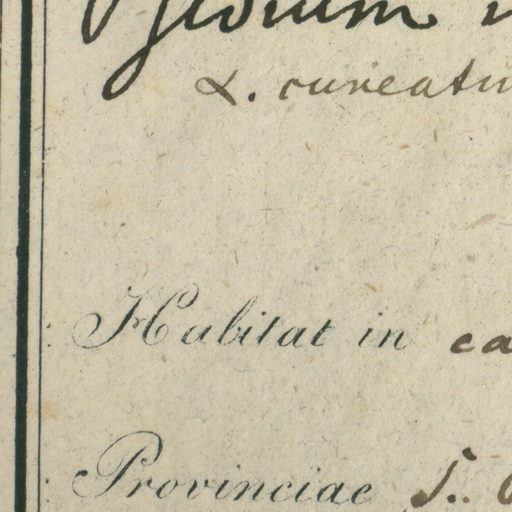 Psidium
α. cuneatu
Habitat in ca
Provinciae S.